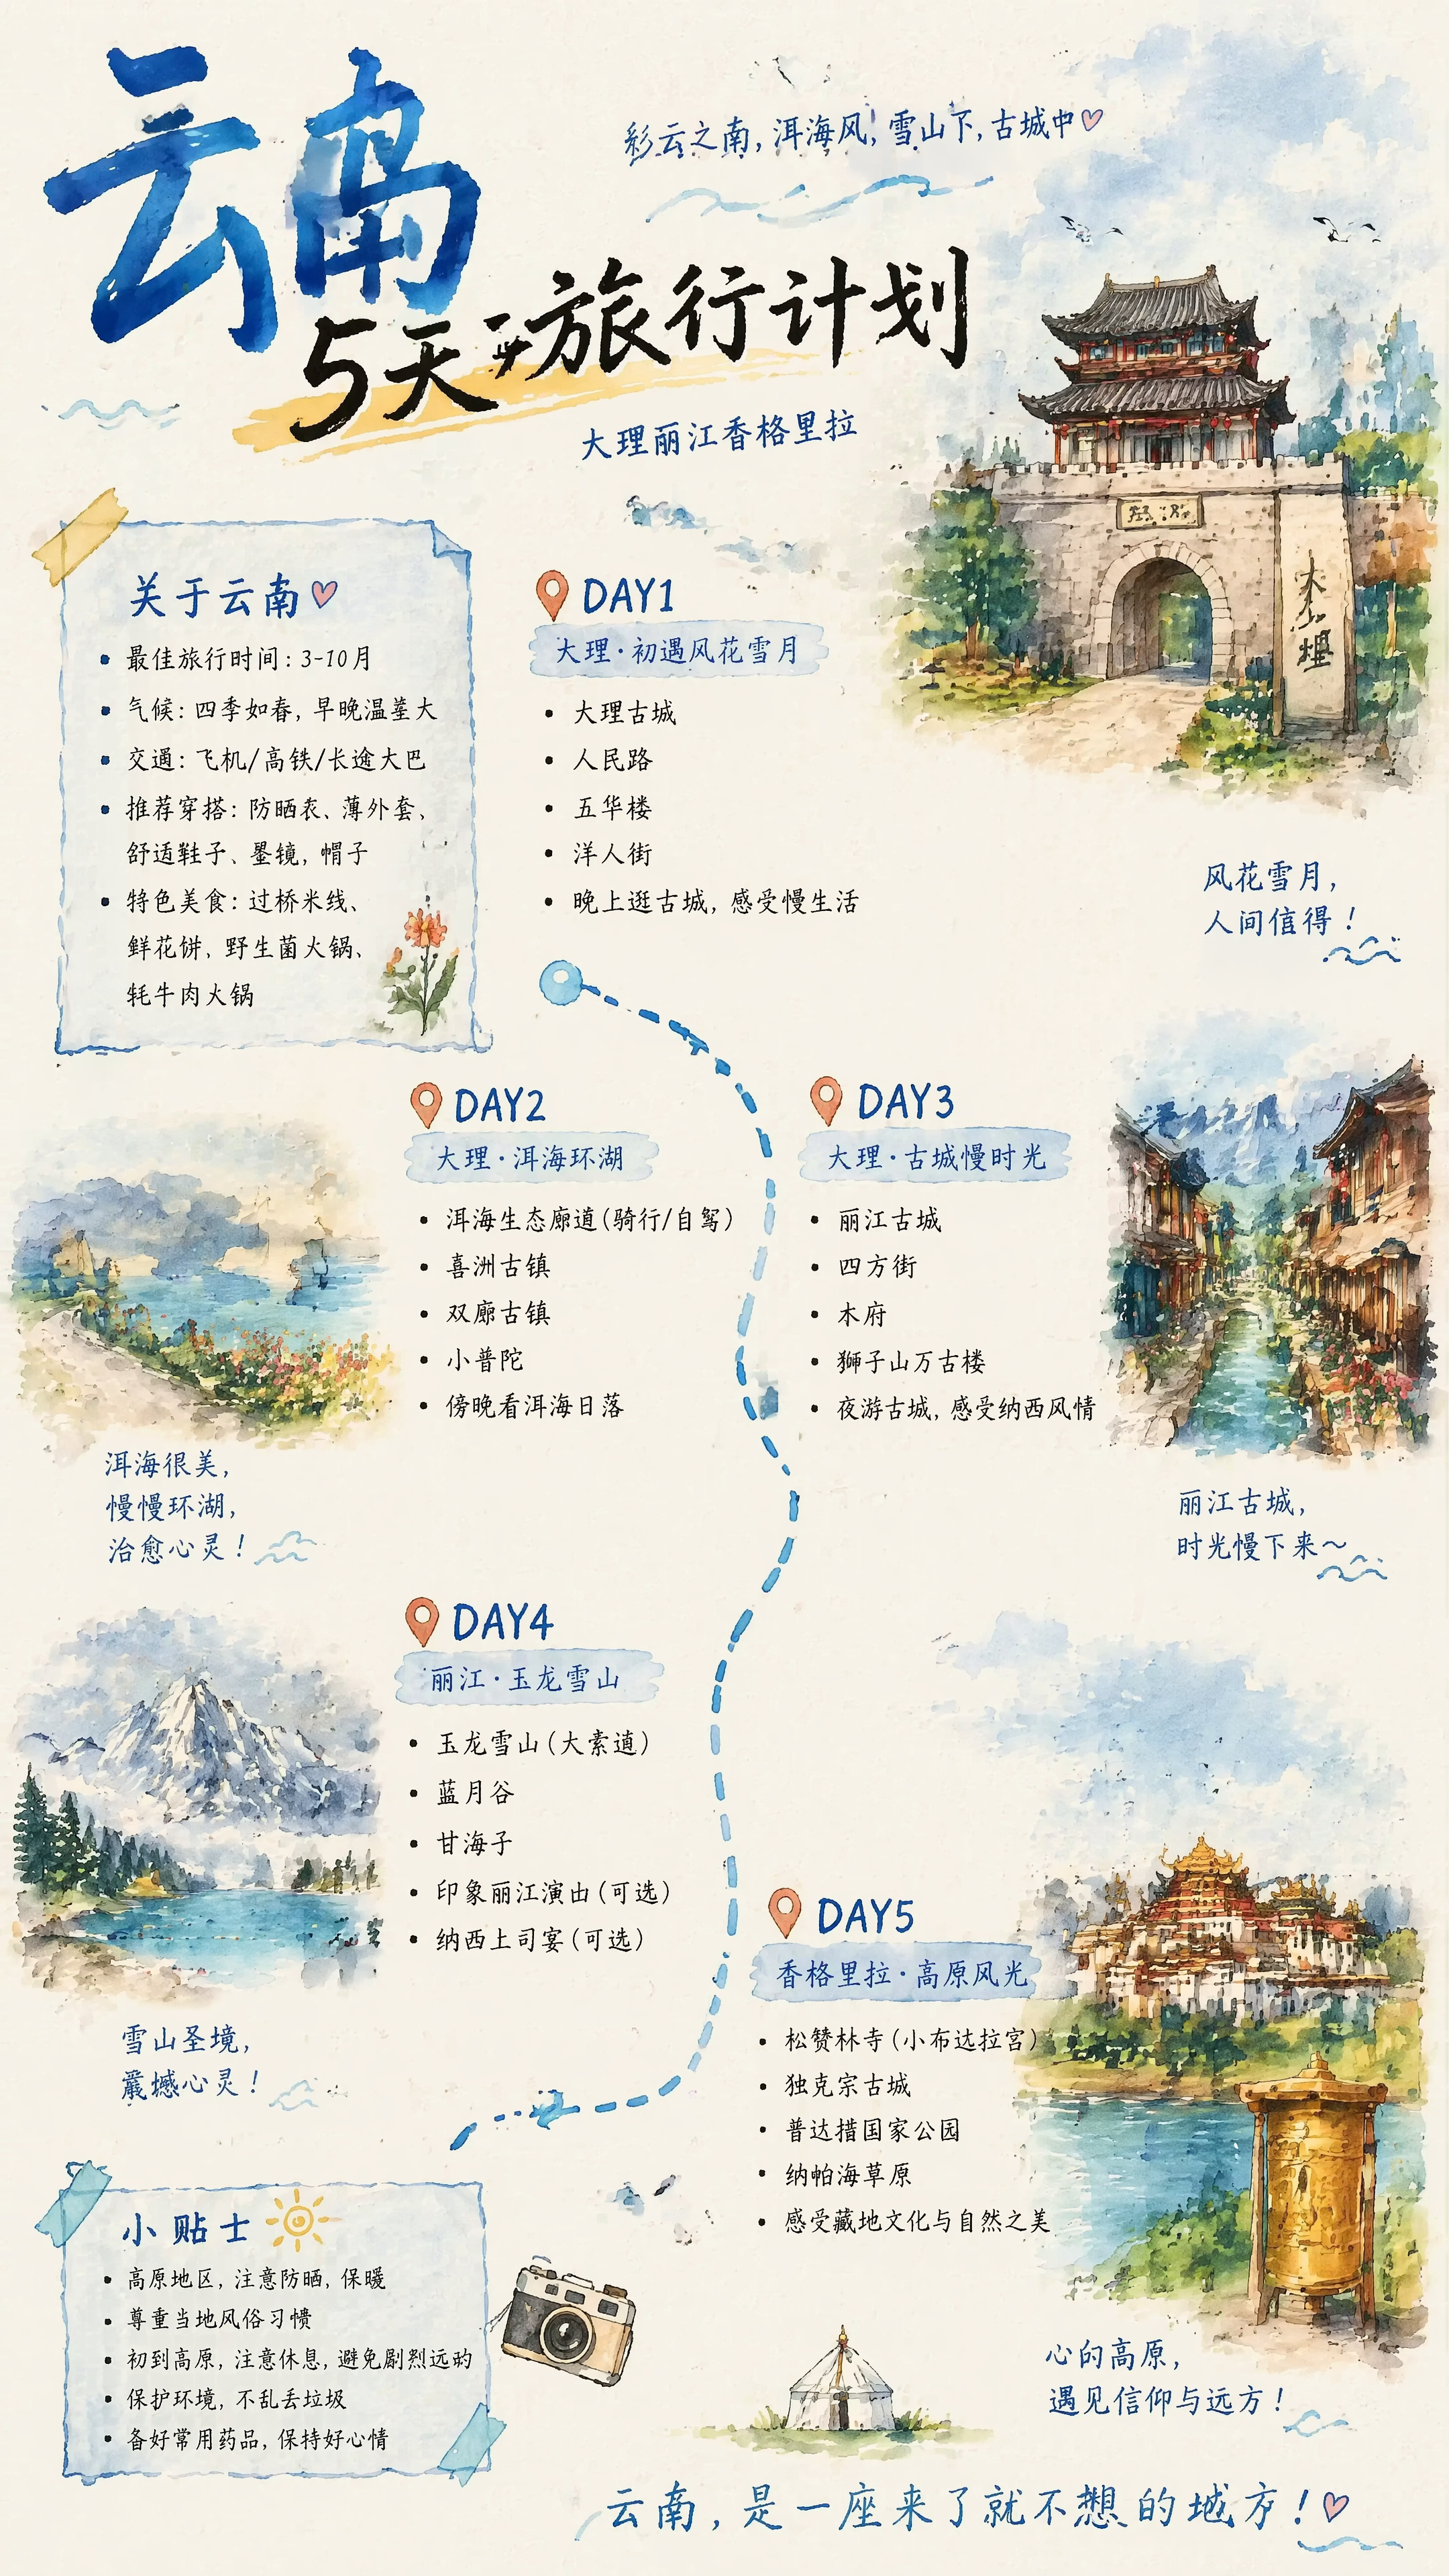 云南
彩云之南,洱海风,雪山下,古城中
5天 旅行计划
大理丽江香格里拉
大理
关于云南
• 最佳旅行时间: 3-10月
• 气候: 四季如春, 早晚温差大
• 交通: 飞机/高铁/长途大巴
• 推荐穿搭: 防晒衣、薄外套、
舒适鞋子、墨镜, 帽子
• 特色美食: 过桥米线、
鲜花饼, 野生菌火锅、
牦牛肉火锅
DAY1
大理·初遇风花雪月
• 大理古城
• 人民路
• 五华楼
• 洋人街
• 晚上逛古城, 感受慢生活
风花雪月,
人间值得!
DAY2
大理·洱海环湖
• 洱海生态廊道(骑行/自驾)
• 喜洲古镇
• 双廊古镇
• 小普陀
• 傍晚看洱海日落
洱海很美,
慢慢环湖,
治愈心灵!
DAY3
大理·古城慢时光
• 丽江古城
• 四方街
• 木府
• 狮子山万古楼
• 夜游古城, 感受纳西风情
丽江古城,
时光慢下来~
DAY4
丽江·玉龙雪山
• 玉龙雪山(大索道)
• 蓝月谷
• 甘海子
• 印象丽江演出(可选)
• 纳西土司宴(可选)
雪山圣境,
震撼心灵!
DAY5
香格里拉·高原风光
• 松赞林寺(小布达拉宫)
• 独克宗古城
• 普达措国家公园
• 纳帕海草原
• 感受藏地文化与自然之美
心的高原,
遇见信仰与远方!
小贴士
• 高原地区, 注意防晒, 保暖
• 尊重当地风俗习惯
• 初到高原, 注意休息, 避免剧烈远的
• 保护环境, 不乱丢垃圾
• 备好常用药品, 保持好心情
云南,是一座来了就不想的地方!